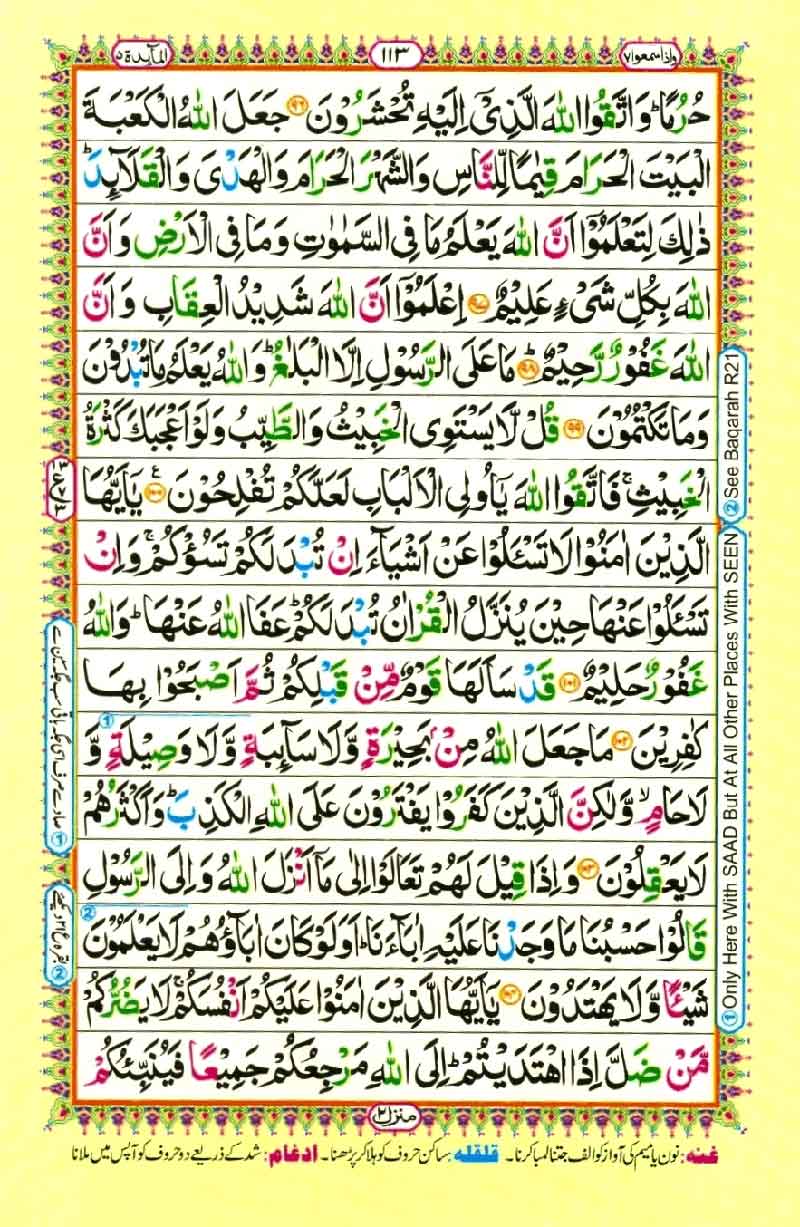 واذاسمعوا٧
١١٣
المآئدة٥
حُرُمًا ؕ وَاتَّقُوا اللّٰهَ الَّذِىْۤ اِلَيْهِ تُحْشَرُوْنَ ﴿۹۶﴾ جَعَلَ اللّٰهُ الْكَعْبَةَ
الْبَيْتَ الْحَرَامَ قِيٰمًا لِّلنَّاسِ وَالشَّهْرَ الْحَرَامَ وَالْهَدْىَ وَالْقَلَآئِدَ ؕ
ذٰلِكَ لِتَعْلَمُوْۤا اَنَّ اللّٰهَ يَعْلَمُ مَا فِى السَّمٰوٰتِ وَمَا فِى الْاَرْضِ وَاَنَّ
اللّٰهَ بِكُلِّ شَىْءٍ عَلِيْمٌ ﴿۹۷﴾ اِعْلَمُوْۤا اَنَّ اللّٰهَ شَدِيْدُ الْعِقَابِ وَاَنَّ
اللّٰهَ غَفُوْرٌ رَّحِيْمٌ ؕ ﴿۹۸﴾ مَا عَلَى الرَّسُوْلِ اِلَّا الْبَلٰغُ ؕ وَاللّٰهُ يَعْلَمُ مَا تُبْدُوْنَ
وَمَا تَكْتُمُوْنَ ﴿۹۹﴾ قُلْ لَّا يَسْتَوِى الْخَبِيْثُ وَالطَّيِّبُ وَلَوْ اَعْجَبَكَ كَثْرَةُ
الْخَبِيْثِ ۚ فَاتَّقُوا اللّٰهَ يٰۤاُولِى الْاَلْبَابِ لَعَلَّكُمْ تُفْلِحُوْنَ ﴿۱۰۰﴾ يٰۤاَيُّهَا
الَّذِيْنَ اٰمَنُوْا لَا تَسْـَٔلُوْا عَنْ اَشْيَآءَ اِنْ تُبْدَ لَكُمْ تَسُؤْكُمْ ۚ وَاِنْ
تَسْـَٔلُوْا عَنْهَا حِيْنَ يُنَزَّلُ الْقُرْاٰنُ تُبْدَ لَكُمْ ؕ عَفَا اللّٰهُ عَنْهَا ؕ وَاللّٰهُ
غَفُوْرٌ حَلِيْمٌ ﴿۱۰۱﴾ قَدْ سَاَلَهَا قَوْمٌ مِّنْ قَبْلِكُمْ ثُمَّ اَصْبَحُوْا بِهَا
كٰفِرِيْنَ ﴿۱۰۲﴾ مَا جَعَلَ اللّٰهُ مِنْۢ بَحِيْرَةٍ وَّلَا سَآئِبَةٍ وَّلَا وَصِيْلَةٍ وَّ
لَا حَامٍ ۙ وَّلٰكِنَّ الَّذِيْنَ كَفَرُوْا يَفْتَرُوْنَ عَلَى اللّٰهِ الْكَذِبَ ؕ وَاَكْثَرُهُمْ
لَا يَعْقِلُوْنَ ﴿۱۰۳﴾ وَاِذَا قِيْلَ لَهُمْ تَعَالَوْا اِلٰى مَاۤ اَنْزَلَ اللّٰهُ وَاِلَى الرَّسُوْلِ
قَالُوْا حَسْبُنَا مَا وَجَدْنَا عَلَيْهِ اٰبَآءَنَا ؕ اَوَلَوْ كَانَ اٰبَآؤُهُمْ لَا يَعْلَمُوْنَ
شَيْـًٔا وَّلَا يَهْتَدُوْنَ ﴿۱۰۴﴾ يٰۤاَيُّهَا الَّذِيْنَ اٰمَنُوْا عَلَيْكُمْ اَنْفُسَكُمْ ۚ لَا يَضُرُّكُمْ
مَّنْ ضَلَّ اِذَا اهْتَدَيْتُمْ ؕ اِلَى اللّٰهِ مَرْجِعُكُمْ جَمِيْعًا فَيُنَبِّئُكُمْ
② See Baqarah R21
① Only Here With SAAD But At All Other Places With SEEN
منزل٢
غنه: نون یا میم کی آواز کو الف جتنا لمبا کرنا۔ قلقله: ساکن حروف کو ہلا کر پڑھنا۔ ادغام: شد کے ذریعے دو حروف کو آپس میں ملانا